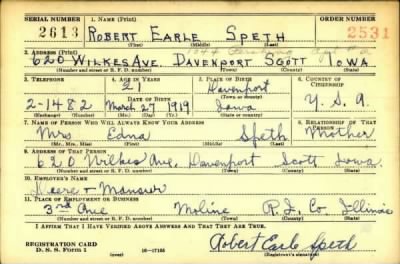 SERIAL NUMBER 1. NAME (Print) ORDER NUMBER
2613 ROBERT EARLE SPETH 2531
(First) (Middle) (Last)
2. ADDRESS (Print) 1844
620 WILKES AVE. DAVENPORT SCOTT IOWA
(Number and street or R. F. D. number) (Town) (County) (State)
3. TELEPHONE 4. AGE IN YEARS 5. PLACE OF BIRTH 6. COUNTRY OF CITIZENSHIP
21 Davenport
DATE OF BIRTH (Town or county)
2-1482 March 27 1919 Iowa U.S.A.
(Exchange) (Number) (Mo.) (Day) (Yr.) (State or country)
7. NAME OF PERSON WHO WILL ALWAYS KNOW YOUR ADDRESS 8. RELATIONSHIP OF THAT PERSON
Mrs Edna Speth Mother
(Mr., Mrs., Miss) (First) (Middle) (Last)
9. ADDRESS OF THAT PERSON
620 Wilkes Ave, Davenport Scott Iowa
(Number and street or R. F. D. number) (Town) (County) (State)
10. EMPLOYER'S NAME
Deere & Mansur
11. PLACE OF EMPLOYMENT OR BUSINESS
3rd Ave Moline R.I. Co. Illinois
(Number and street or R. F. D. number) (Town) (County) (State)
I AFFIRM THAT I HAVE VERIFIED ABOVE ANSWERS AND THAT THEY ARE TRUE.
REGISTRATION CARD
D. S. S. Form 1 16-17105 Robert Earle Speth
(Registrant's signature)